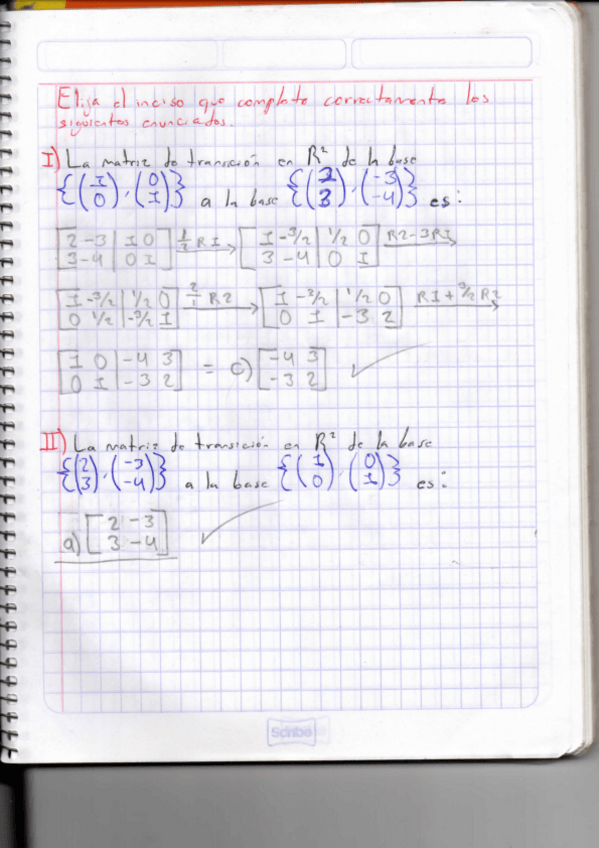 Elija el inciso que complete correctamente los
siguientes enunciados.
I) La matriz de transición en R² de la base
{(1 0), (0 1)} a la base {(2 3), (-3 -4)} es:
[2 -3 | 1 0] 1/2 R1 → [1 -3/2 | 1/2 0] R2-3R1 →
[3 -4 | 0 1] [3 -4 | 0 1]
[1 -3/2 | 1/2 0] 2/1 R2 → [1 -3/2 | 1/2 0] R1+3/2 R2 →
[0 1/2 | -3/2 1] [0 1 | -3 2]
[1 0 | -4 3] = c) [-4 3] ✓
[0 1 | -3 2] [-3 2]
II) La matriz de transición en R² de la base
{(2 3), (-3 -4)} a la base {(1 0), (0 1)} es:
a) [2 -3] ✓
[3 -4]
Scribe